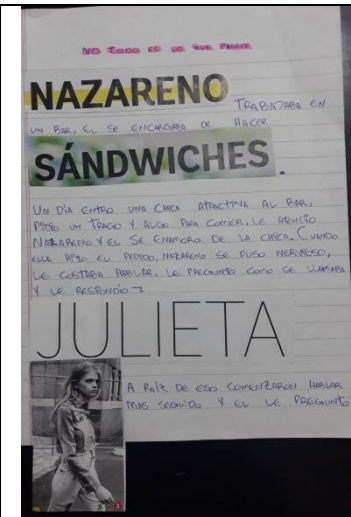 NO TODO ES LO QUE PARECE
NAZARENO TRABAJABA EN
UN BAR, EL SE ENCARGABA DE HACER
SÁNDWICHES.
UN DÍA ENTRO UNA CHICA ATRACTIVA AL BAR,
PIDIO UN TRAGO Y ALGO PARA COMER, LE ATENDIO
NAZARENO Y EL SE ENAMORO DE LA CHICA. CUANDO
ELLA HIZO EL PEDIDO, NAZARENO SE PUSO NERVIOSO,
LE COSTABA HABLAR, LE PREGUNTO COMO SE LLAMABA
Y LE RESPONDIO
JULIETA
A RAÍZ DE ESO COMENZARON HABLAR
MAS SEGUIDO Y EL LE PREGUNTO